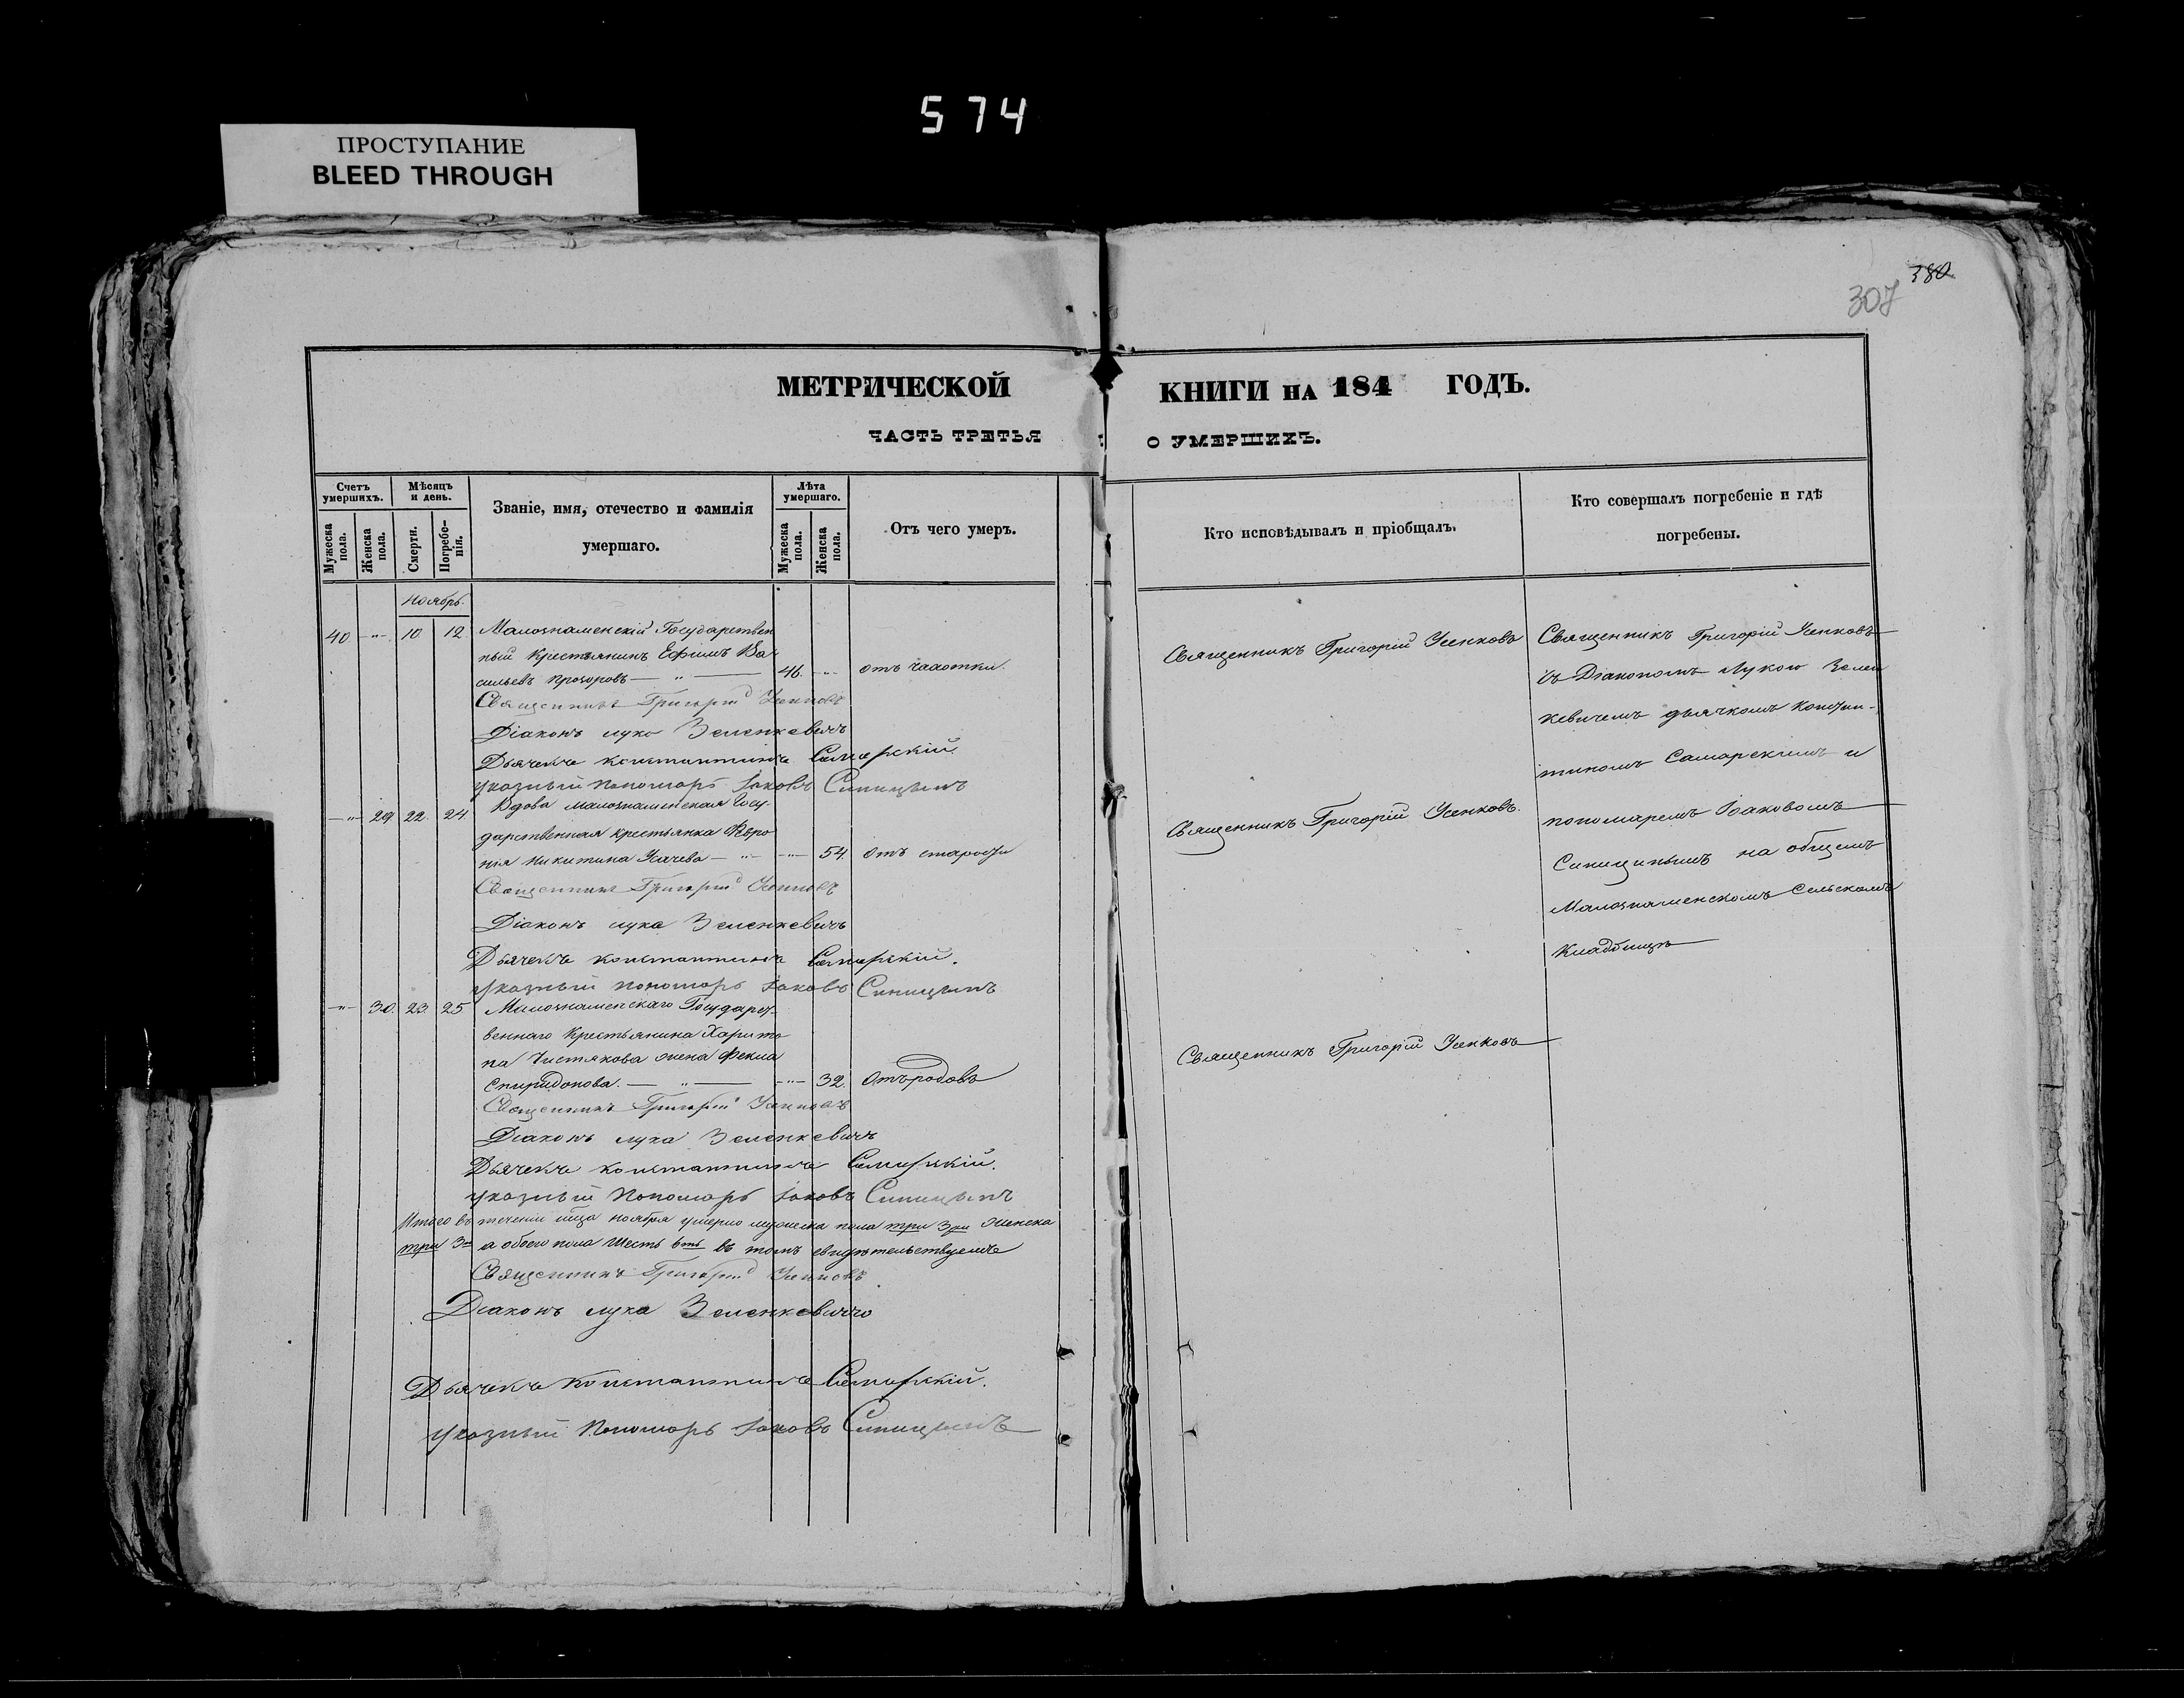 574
ПРОСТУПАНИЕ
BLEED THROUGH
380
307
МЕТРИЧЕСКОЙ КНИГИ НА 184 ГОДЪ.
ЧАСТЬ ТРЕТЬЯ О УМЕРШИХЪ.
Счетъ умершихъ.
Мужеска пола.
Женска пола.
Мѣсяцъ и день.
Смерти.
Погребенія.
Званіе, имя, отечество и фамилія
умершаго.
Лѣта умершаго.
Мужеска пола.
Женска пола.
Отъ чего умеръ.
Кто исповѣдывалъ и пріобщалъ.
Кто совершалъ погребеніе и гдѣ
погребены.
Ноябрь.
40 -"- 10 12 Малознаменскій Государствен
ный Крестьянинъ Ефимъ Ва
сильевъ Прохоровъ — " — 46. -"- отъ чахотки.
Священникъ Григорій Усенковъ
Діаконъ Лука Зеленкевичъ
Дьячекъ Константинъ Самарскій
Указный Пономарь Іаковъ Синицынъ
-"- 29 22. 24 Вдова Малознаменская Госу-
дарственная крестьянка Февро
нія Никитина Усачева — " — -"- 54. отъ старости
Священникъ Григорій Усенковъ
Діаконъ Лука Зеленкевичъ
Дьячекъ Константинъ Самарскій.
Указный Пономарь Іаковъ Синицынъ
-"- 30. 23. 25 Малознаменскаго Государст-
веннаго Крестьянина Харито
на Чистякова жена Фекла
Спиридонова. — " — -"- 32. Отъ родовъ
Священникъ Григорій Усенковъ
Діаконъ Лука Зеленкевичъ
Дьячекъ Константинъ Самарскій.
Указный Пономарь Іаковъ Синицынъ
Итого въ теченіи мца ноября умерло мужеска пола три 3ри женска
три 3ри а обоего пола шесть 6ть въ томъ свидѣтельствуемъ
Священникъ Григорій Усенковъ
Діаконъ Лука Зеленкевичъ
Дьячекъ Константинъ Самарскій.
Указный Пономарь Іаковъ Синицынъ
Священникъ Григорій Усенковъ
Священникъ Григорій Усенковъ.
Священникъ Григорій Усенковъ
Священникъ Григорій Усенковъ
съ Діакономъ Лукою Зелен
кевичемъ дьячкомъ Констан-
тиномъ Самарскимъ и
пономаремъ Іаковомъ
Синицинымъ на общемъ
Малознаменскомъ Сельскомъ
Кладбищѣ